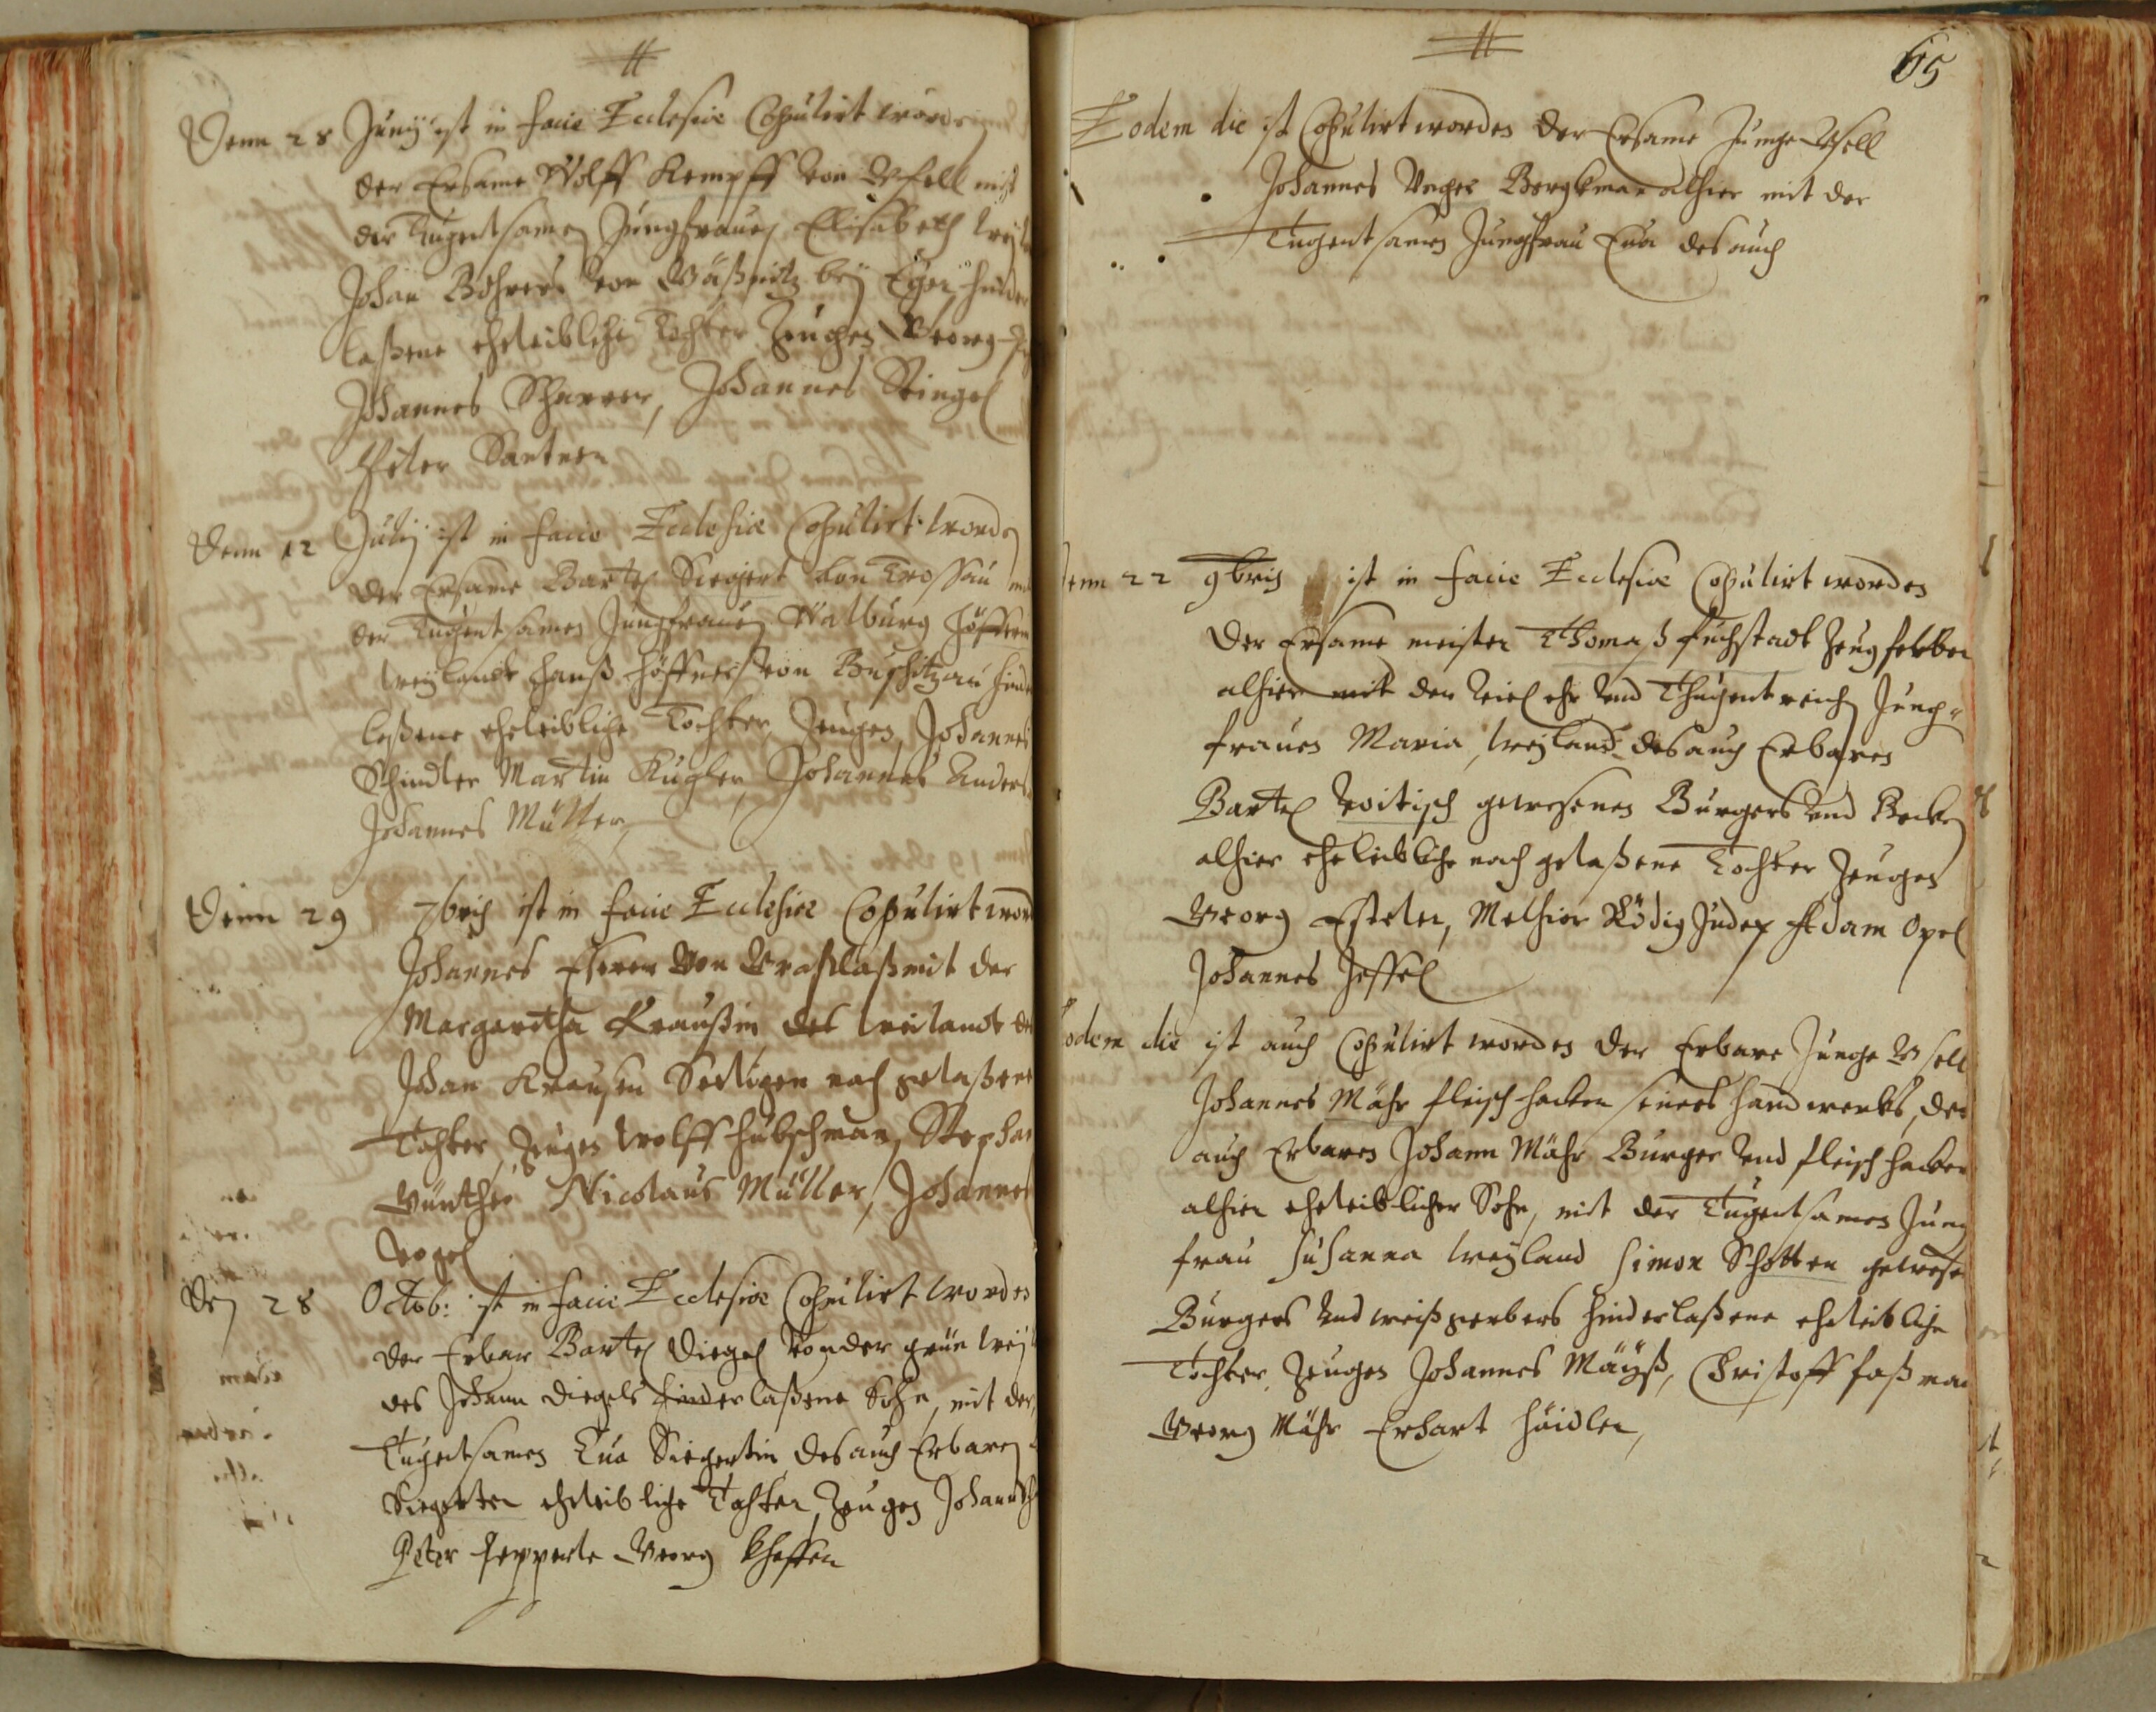 Denn 28 Junÿ ist in facie Ecclesiæ Copulirt worden
der Ersame Wolff Kempff von Gfell mit
der Tugentsamen Jungfrauen Elisabeth
Johan Bohrers von bey Eger hinder
laßene eheleibliche Tochter Zeugen Georg
Johannes Scherer, Johannes Stingel
Peter Santner
Denn 12 Julij ist in facie Ecclesiæ Copulirt worden
der Ersame Bartel Siegert von Trossau
der Tugentsamen Jungfrauen Walburg Höffner
weylandt Hanß Höffners von hind
laßene eheleibliche Tochter, Zeugen, Johannes
Schindler Martin Kugler, Johannes Anders
Johannes Müller,
Denn 29 7bris ist in facie Ecclesiæ Copulirt word
Johannes von mit der
Margaretha Kraußin des weilandt
Johan Krausen Seeligen nach gelaßene
Tochter, Zeugen Wolff Hubschman, Stephan
Günther Nicolaus Müller, Johannes
Vogel
Den 28 Octob: ist in facie Ecclesiæ Copulirt worden
der Erbar Bartel Diegel von der
des Johann Diegels hinderlaßene Sohn, mit der
Tugentsamen Eua Siegertin des auch Erbaren
Siegerten eheleibliche Tochter, Zeugen Johann
Peter Georg
65
Eodem die ist Copulirt worden der Ersame Junge Gsell
Johannes Unger Bergkman alhier mit der
Tugentsamen Jungfrau Eua des auch
Denn 22 9bris ist in facie Ecclesiæ Copulirt worden
der Ersame meister Thomaß Fuchstadt Zeugferber
alhier mit der viel ehr und Thugentreich Jung-
frauen Maria, weyland des auch Erbaren
Bartel Voitisch gewesenen Burgers und Becken
alhier eheleibliche nach gelaßene Tochter Zeugen
Georg Melhior Rödig Judex Adam Opel
Johannes Heffel
Eodem die ist auch Copulirt worden der Erbare Junge Gsell
Johannes Mähr fleischhacker seines handwerks, des
auch Erbaren Johann Mähr Burger und fleischhacker
alhier eheleiblicher Sohn, mit der Tugentsamen Jung
frau Susanna weyland Simon Schotten gewese
Burgers und weißgerbers hinderlaßene eheleibliche
Tochter, Zeugen Johannes Mäyß, Christoff faßman
Georg Mähr Erhart Häidler,